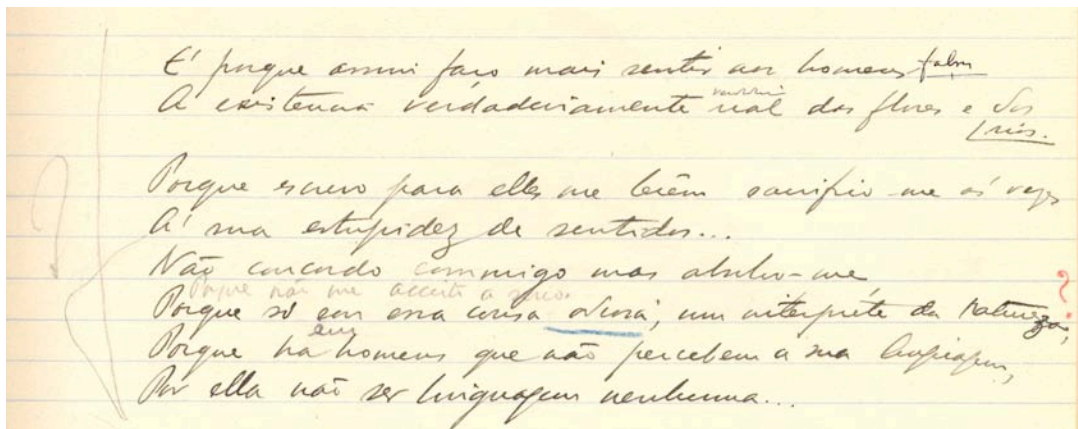 E' porque assim faço mais sentir aos homens falsos
A existencia verdadeiramente real das flores e dos
rios.
Porque escrevo para elles me lerem sacrifico-me ás vezes
A' sua estupidez de sentidos...
Não concordo commigo mas absolvo-me
Porque não me acceito a serio
Porque só sou essa cousa odiosa, um interprete da Natureza,
Porque ha homens que não percebem a sua linguagem,
Por ella não ser linguagem nenhuma...
?